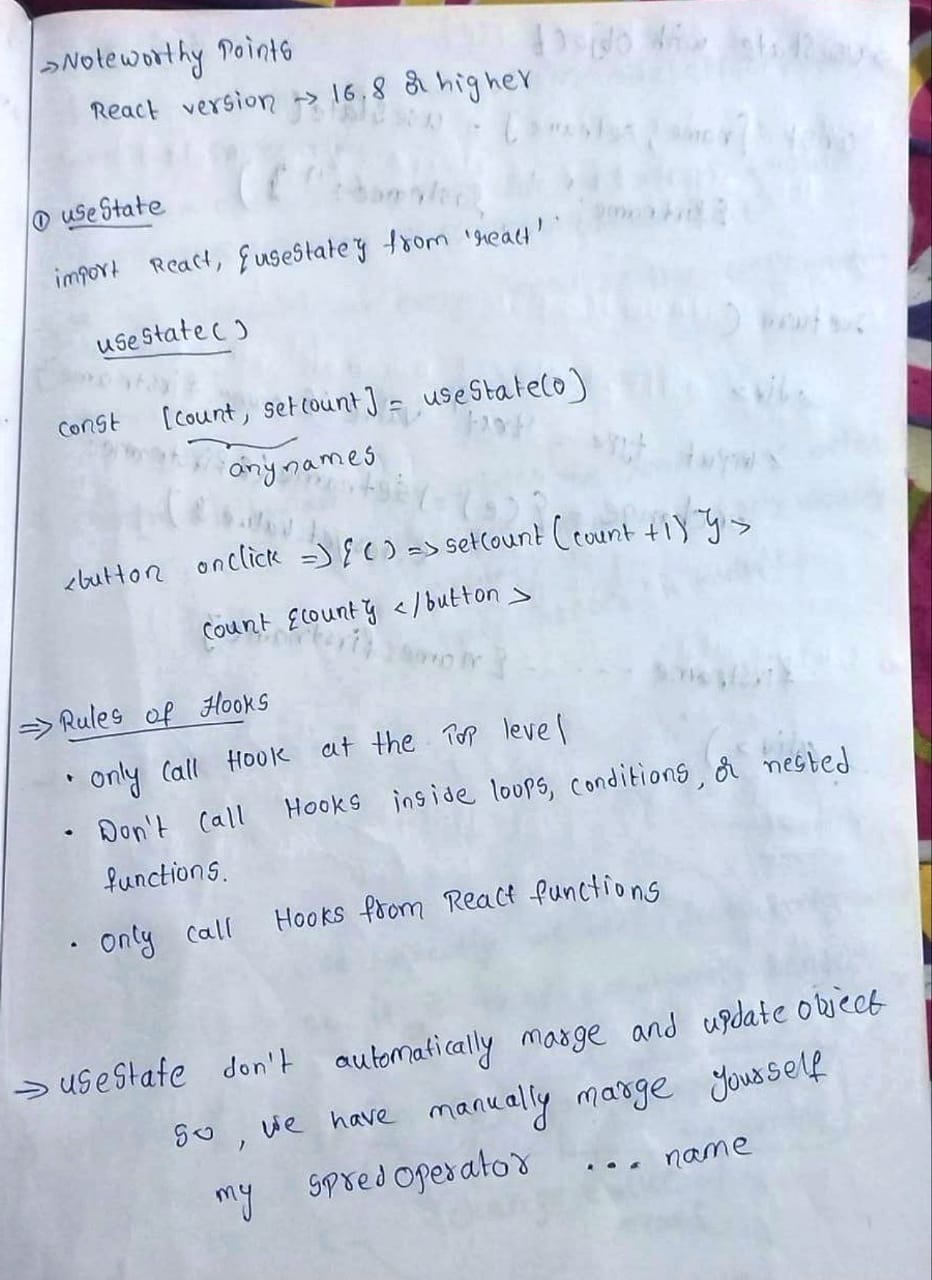 → Noteworthy Points
React version → 16.8 & higher
① useState
import React, {useState} from 'react'
useState()
const [count, setcount] = useState(0)
any names
<button onclick => { () => setcount (count +1) } >
count {count} </button>
⇒ Rules of Hooks
• only call Hook at the Top level
• Don't call Hooks inside loops, conditions, or nested
functions.
• only call Hooks from React functions
⇒ useState don't automatically marge and update object
so, we have manually marge yourself
my spred operator ... name